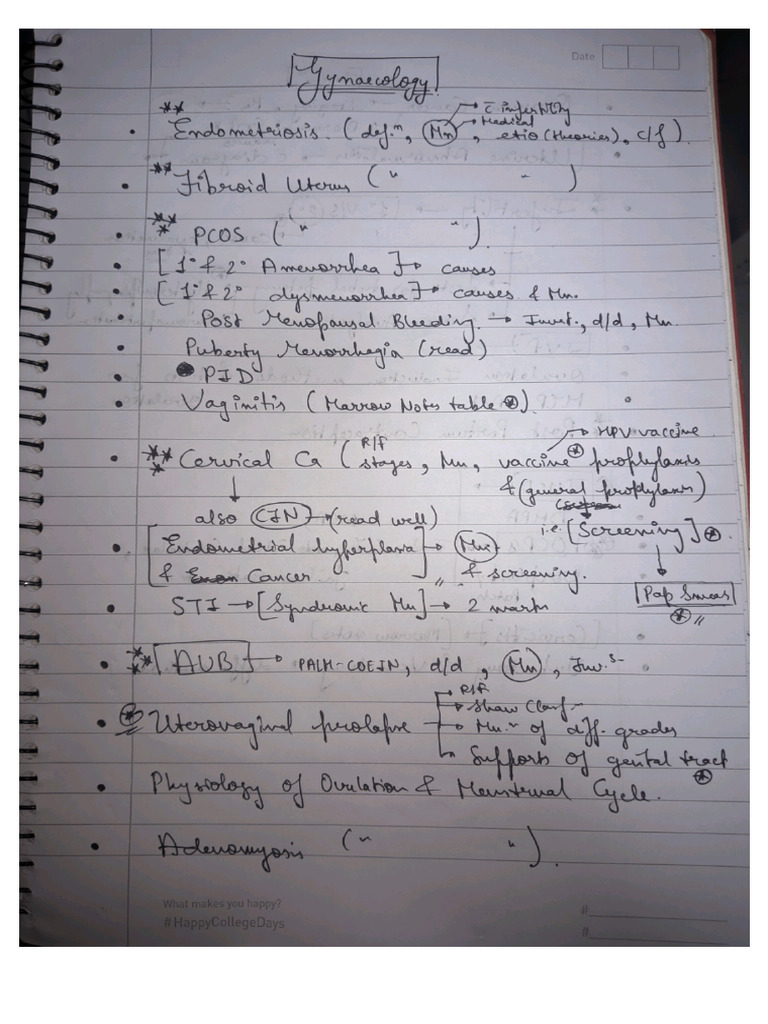 Date
Gynaecology
** c̄ infertility
Medical
• Endometriosis. (def.n, Mn, etio (theories), c/f).
• ** Fibroid Uterus (" ")
• *** PCOS (" ").
• [1° & 2° Amenorrhea] → causes
• [1° & 2° dysmenorrhea] → causes & Mn.
• Post Menopausal Bleeding. → Invst., d/d, Mn.
• Puberty Menorrhagia (read)
• PID
• Vaginitis (Marrow Notes table *)
R/F → HPV vaccine
• *** Cervical Ca (stages, Mn, vaccine* prophylaxis
& (general prophylaxis)
↓ also CIN → (read well)
i.e. [Screening] *.
• [Endometrial hyperplasia → Mn
& Cancer.] & screening.
Pap Smear
*
• STI → [Syndromic Mn] → 2 marks
• *** [AUB] → PALM-COEIN, d/d, Mn, Inv.s
→ R/F
→ Shaw Classf
• * Uterovaginal prolapse → Mn.n of diff. grades
→ Supports of genital tract
*
• Physiology of Ovulation & Menstrual Cycle.
• Adenomyosis (" ").
What makes you happy?
#HappyCollegeDays
//
//